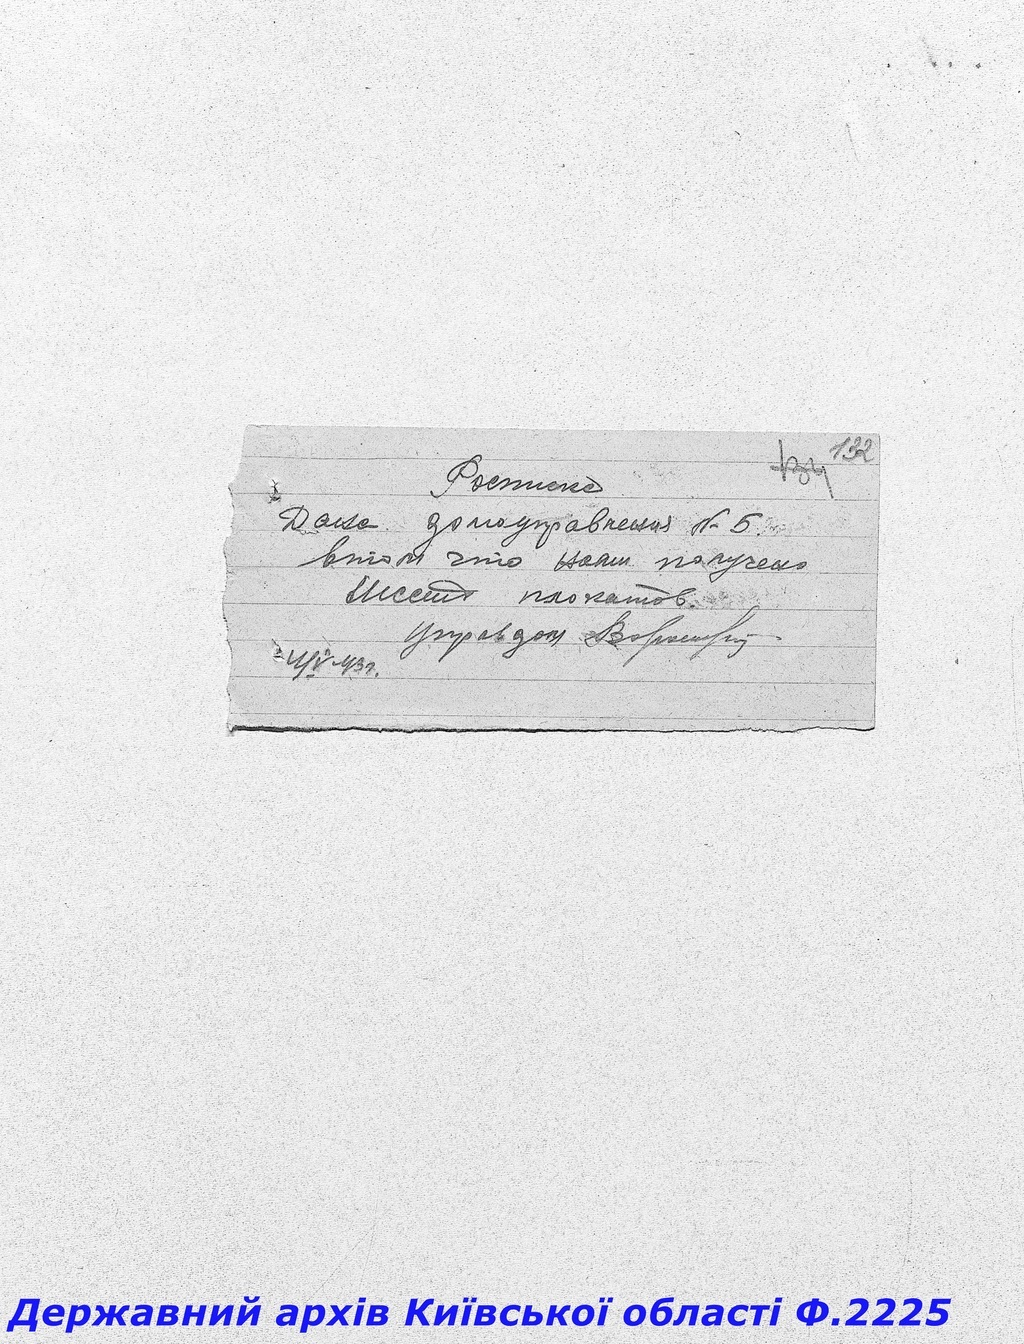 132
Росписка
Дана домоуправления № 5.
втом что нами получено
Шесть плокатов.
Управдом
4/V-43г.
Державний архів Київської області Ф.2225